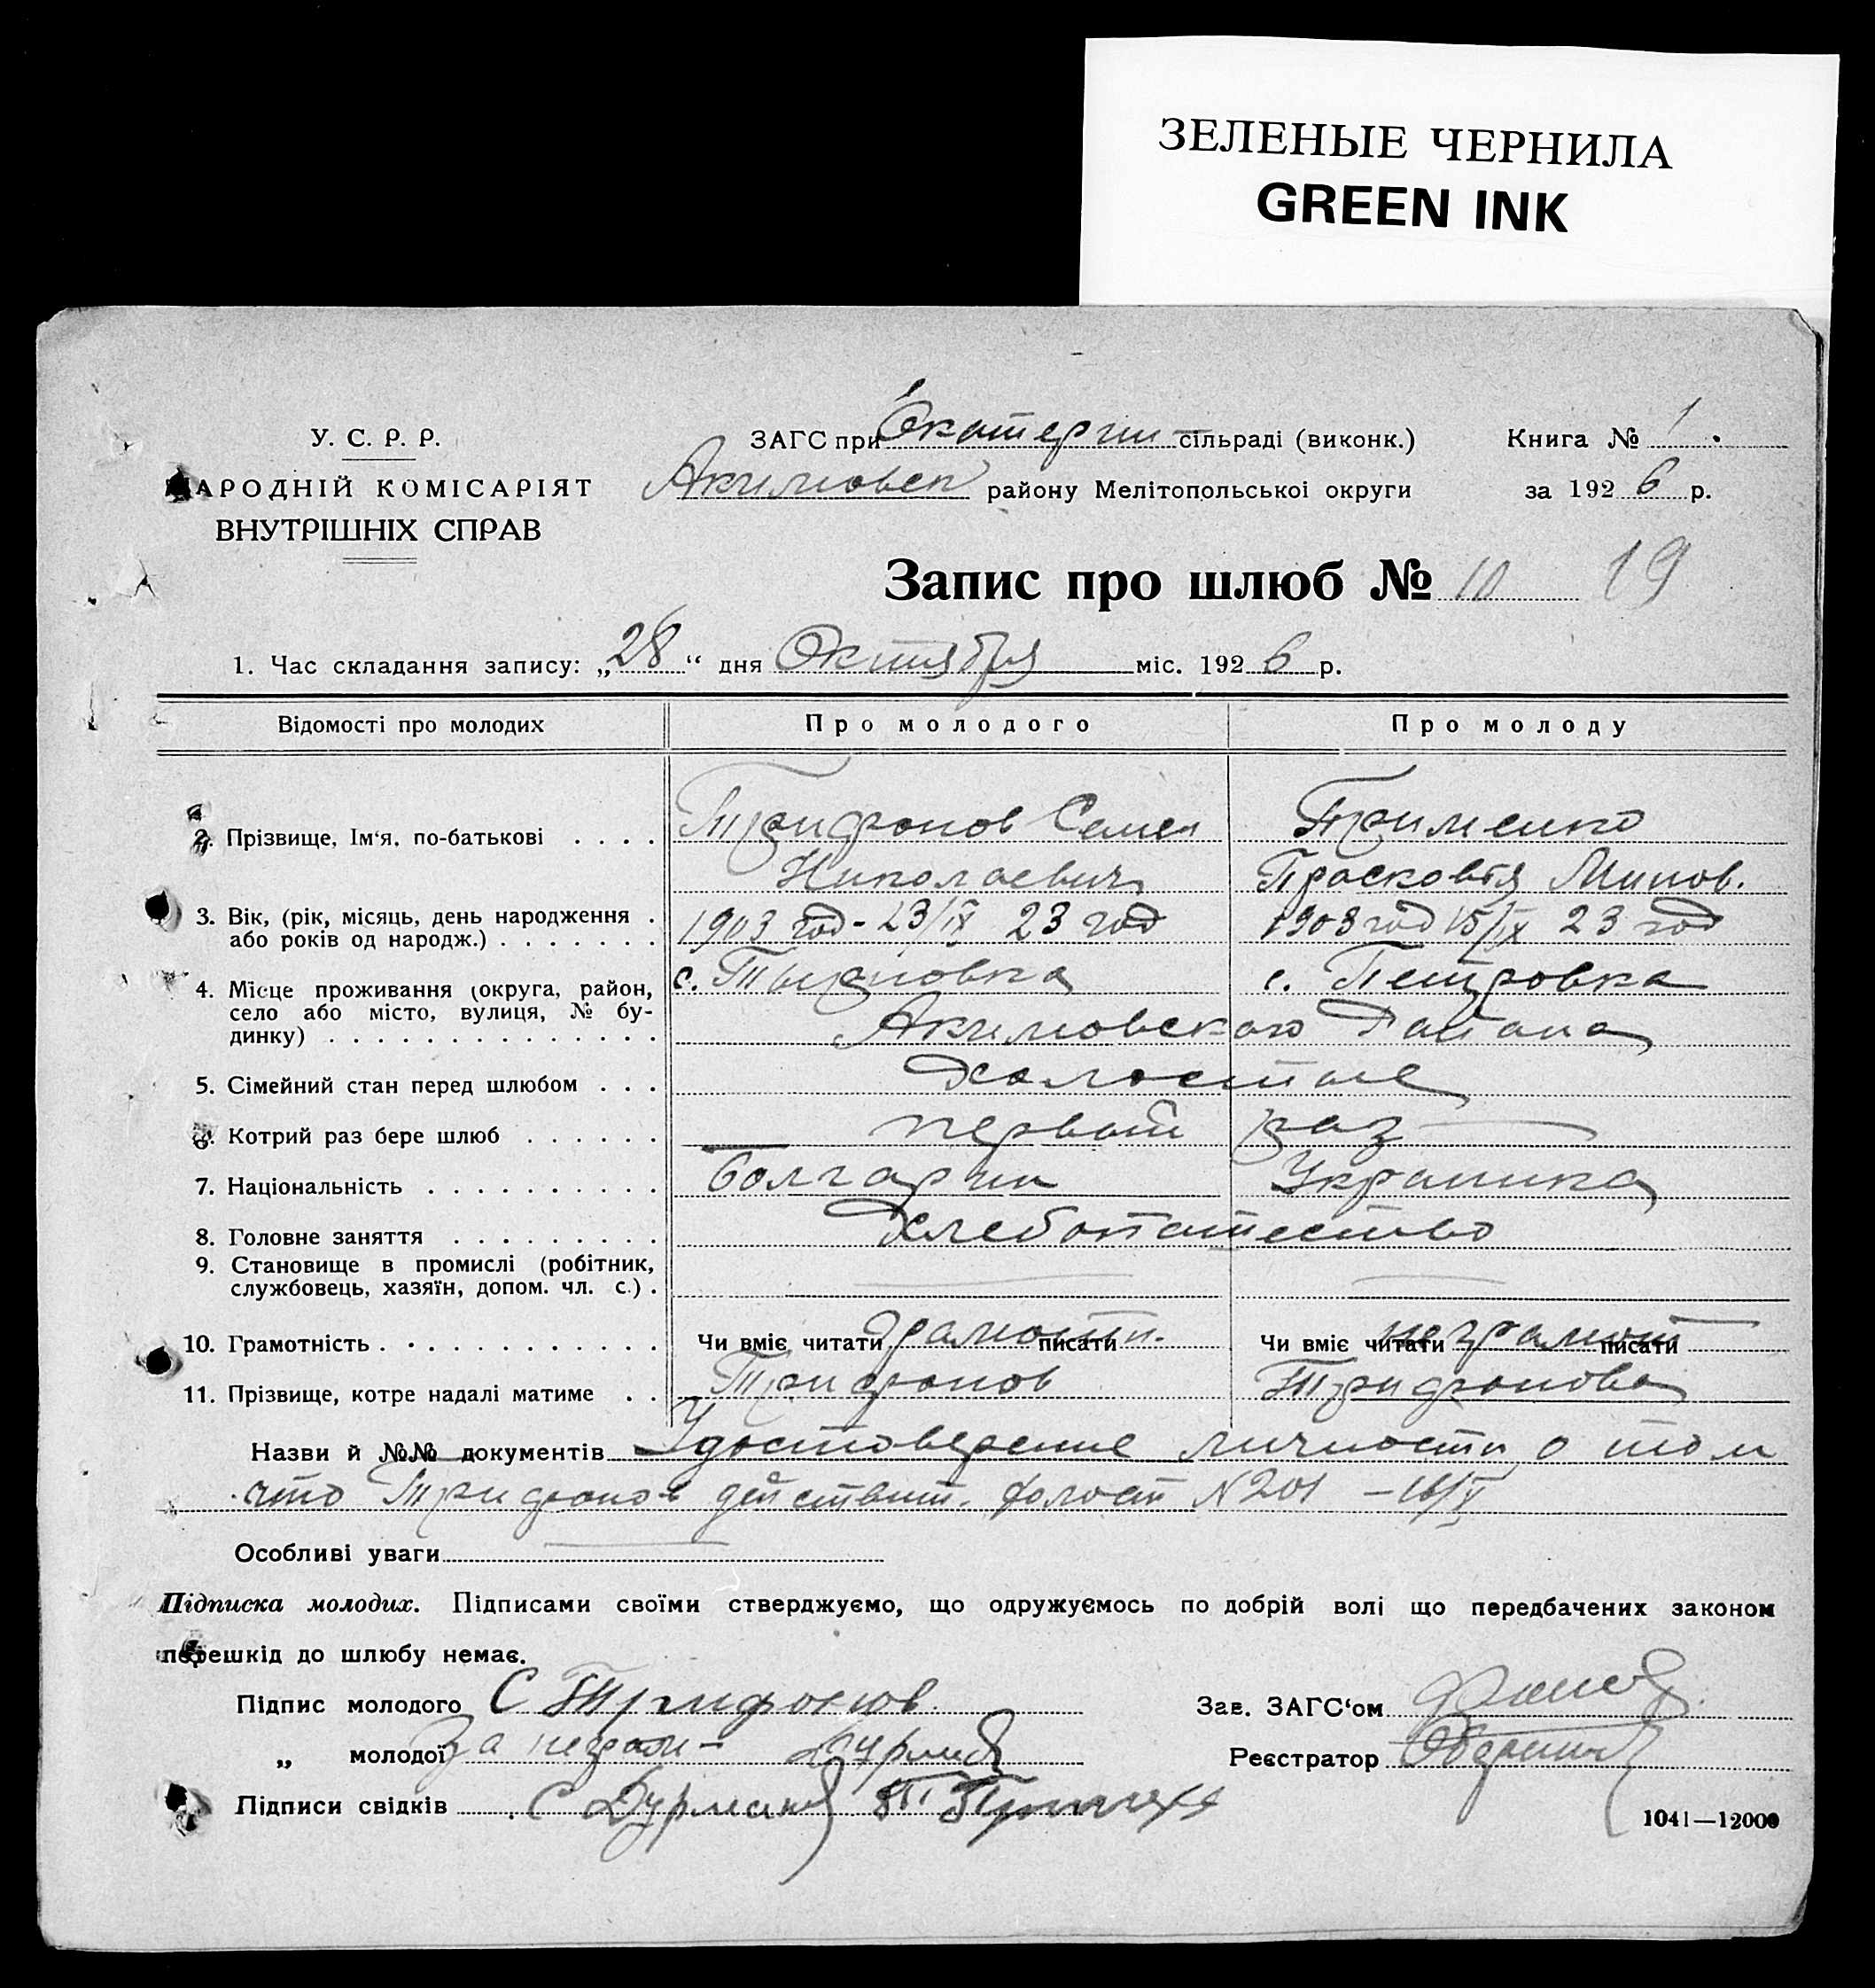 ЗЕЛЕНЫЕ ЧЕРНИЛА
GREEN INK
У. С. Р. Р.
НАРОДНІЙ КОМІСАРІЯТ
ВНУТРІШНІХ СПРАВ
ЗАГС при Екатерин сільраді (виконк.)
Акимовск району Мелітопольської округи
Книга № 1.
за 1926 р.
Запис про шлюб № 10 19
1. Час складання запису: „28“ дня Октября міс. 1926 р.
Відомості про молодих Про молодого Про молоду
2. Прізвище, Ім‘я, по-батькові . . . . Трифонов Семен Трименко
Николаевич Прасковія Минов.
3. Вік, (рік, місяць, день народження . 1903 год - 23/IX 23 год 1903 год 15/IX 23 год
або років од народж.) . . . . . . .
4. Місце проживання (округа, район, с. Тырновка с. Петровка
село або місто, вулиця, № бу-
динку) . . . . . . . . . . . . . . Акимовского Района
5. Сімейний стан перед шлюбом . . . Холостые
6. Котрий раз бере шлюб . . . . . . первый раз
7. Національність . . . . . . . . . . Болгарин Украинка
8. Головне заняття . . . . . . . . . Хлебопашество
9. Становище в промислі (робітник,
службовець, хазяїн, допом. чл. с.) .
10. Грамотність . . . . . . . . . . . . Чи вміє читати грамотн. писати Чи вміє читати неграмот писати
11. Прізвище, котре надалі матиме . . Трифонов Трифонова
Назви й №№ документів Удостоверение личности о том
что Трифонов действит. холост N 201 – 16/V
Особливі уваги
Підписка молодих. Підписами своїми стверджуємо, що одружуємось по добрій волі що передбачених законом
перешкід до шлюбу немає.
Підпис молодого С Трифонов.
Зав. ЗАГС‘ом
„ молодої За неграм –
Реєстратор
Підписи свідків С
1041—12000